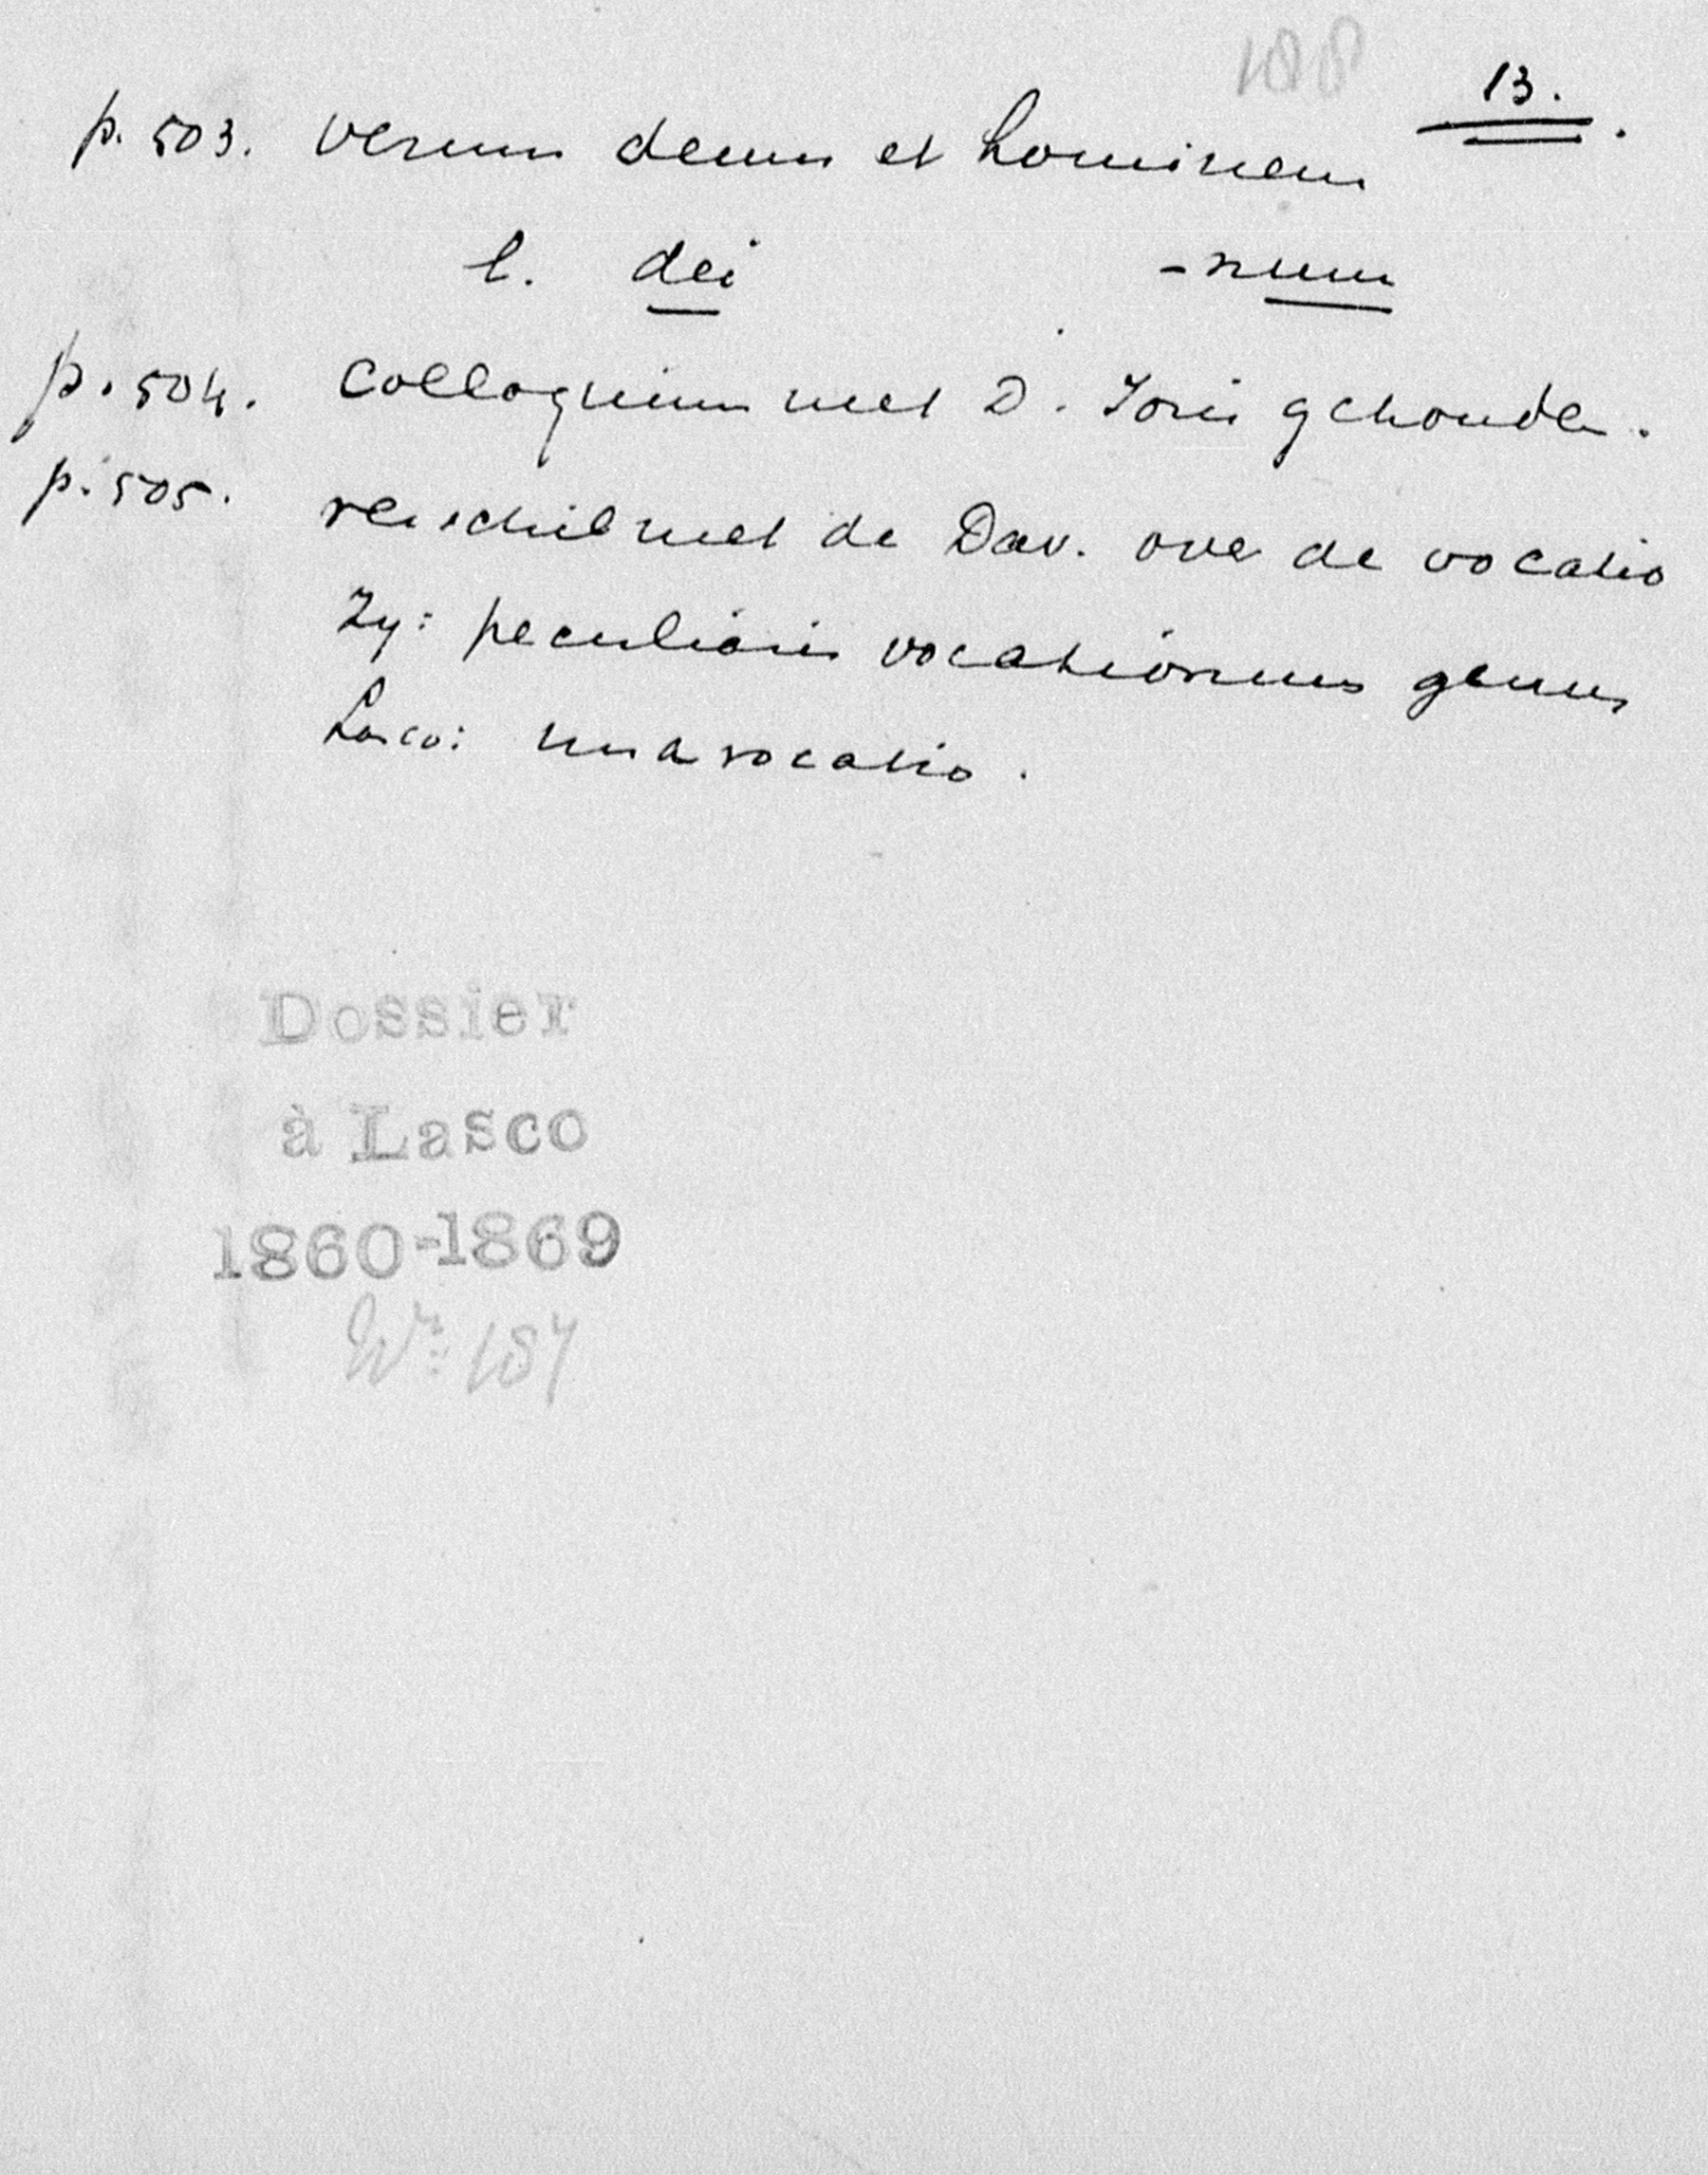 188
13.
p. 503. verum deum et hominem
l. dei -num
p. 504. Colloquium met D. Joris gehouden.
p. 505. verschil met de Dav. over de vocatio
Zy: peculiaris vocationum genus
Lasco: una vocatio.
Dossier
à Lasco
1860-1869
187